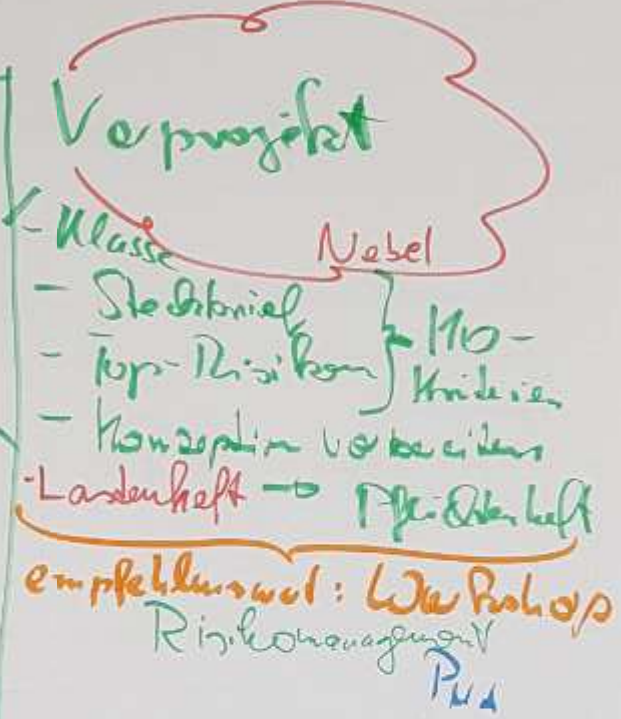 Vorprojekt
Nebel
- Klasse
- Steckbrief
- Top-Risiken
M0-Kriterien
- Konzeption vorbereiten
- Lastenheft → Pflichtenheft
empfehlenswert: Workshop
Risikomanagement